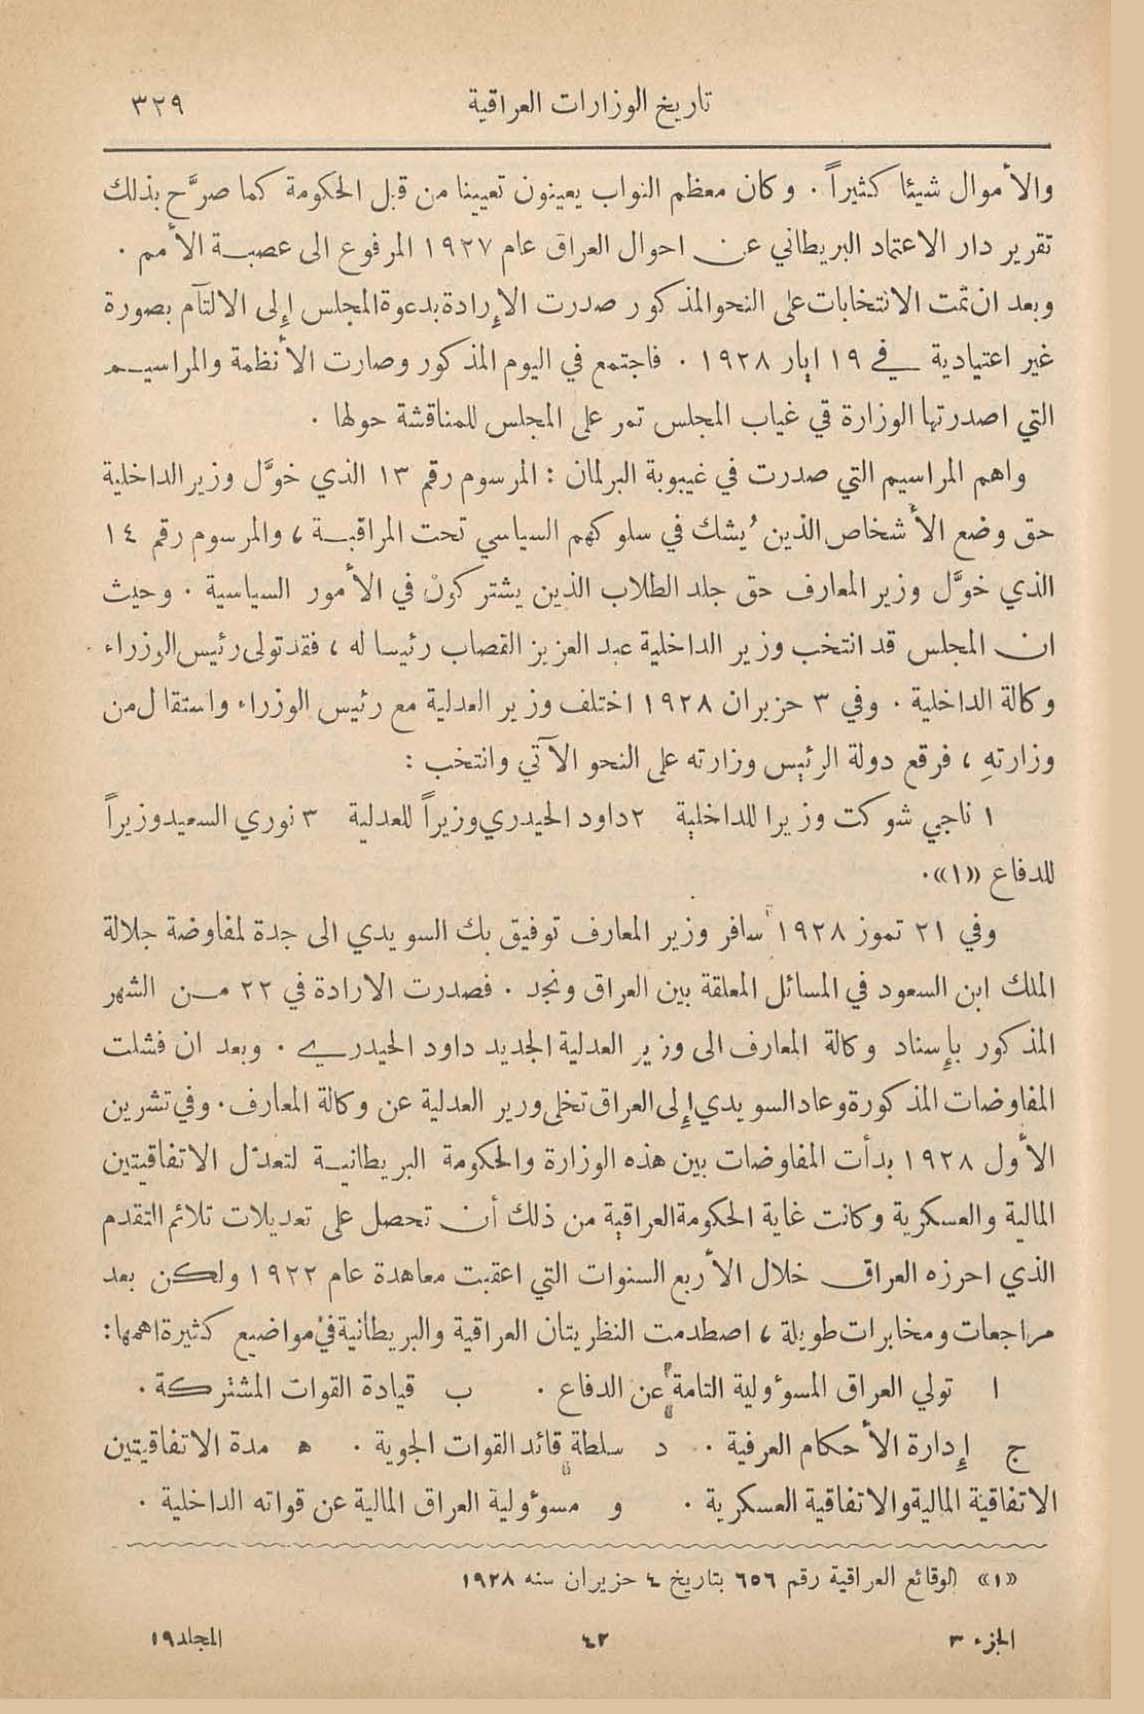 تاريخ الوزارات العراقية ٣٢٩
والأموال شيئا كثيراً . وكان معظم النواب يعينون تعيينا من قبل الحكومة كما صرَّح بذلك
تقرير دار الاعتماد البريطاني عن احوال العراق عام ١٩٢٧ المرفوع الى عصبة الأمم .
وبعد ان تمت الانتخابات على النحو المذكور صدرت الإرادة بدعوة المجلس إلى الالتآم بصورة
غير اعتيادية في ١٩ ايار ١٩٢٨ . فاجتمع في اليوم المذكور وصارت الأنظمة والمراسيم
التي اصدرتها الوزارة في غياب المجلس تمر على المجلس للمناقشة حولها .
واهم المراسيم التي صدرت في غيبوبة البرلمان : المرسوم رقم ١٣ الذي خوَّل وزير الداخلية
حق وضع الأشخاص الذين يُشك في سلوكهم السياسي تحت المراقبة ، والمرسوم رقم ١٤
الذي خوَّل وزير المعارف حق جلد الطلاب الذين يشتركون في الأمور السياسية . وحيث
ان المجلس قد انتخب وزير الداخلية عبد العزيز القصاب رئيسا له ، فقد تولى رئيس الوزراء
وكالة الداخلية . وفي ٣ حزيران ١٩٢٨ اختلف وزير العدلية مع رئيس الوزراء واستقال من
وزارتهِ ، فرقع دولة الرئيس وزارته على النحو الآتي وانتخب :
١ ناجي شوكت وزيرا للداخلية ٢ داود الحيدري وزيراً للعدلية ٣ نوري السعيد وزيراً
للدفاع «١».
وفي ٢١ تموز ١٩٢٨ سافر وزير المعارف توفيق بك السويدي الى جدة لمفاوضة جلالة
الملك ابن السعود في المسائل المعلقة بين العراق ونجد . فصدرت الارادة في ٢٢ من الشهر
المذكور بإسناد وكالة المعارف الى وزير العدلية الجديد داود الحيدري . وبعد ان فشلت
المفاوضات المذكورة وعاد السويدي إلى العراق تخلى وزير العدلية عن وكالة المعارف . وفي تشرين
الأول ١٩٢٨ بدأت المفاوضات بين هذه الوزارة والحكومة البريطانية لتعدّل الاتفاقيتين
المالية والعسكرية وكانت غاية الحكومة العراقية من ذلك أن تحصل على تعديلات تلائم التقدم
الذي احرزه العراق خلال الأربع السنوات التي اعقبت معاهدة عام ١٩٢٢ ولكن بعد
مراجعات ومخابرات طويلة ، اصطدمت النظريتان العراقية والبريطانية في مواضيع كثيرة اهمها :
ا تولي العراق المسؤولية التامة عن الدفاع . ب قيادة القوات المشتركة .
ج إدارة الأحكام العرفية . د سلطة قائد القوات الجوية . ه مدة الاتفاقيتين
الاتفاقية المالية والاتفاقية العسكرية . و مسؤولية العراق المالية عن قواته الداخلية .
«١» الوقائع العراقية رقم ٦٥٦ بتاريخ ٤ حزيران سنه ١٩٢٨
الجزء ٣ ٤٢ المجلد ١٩